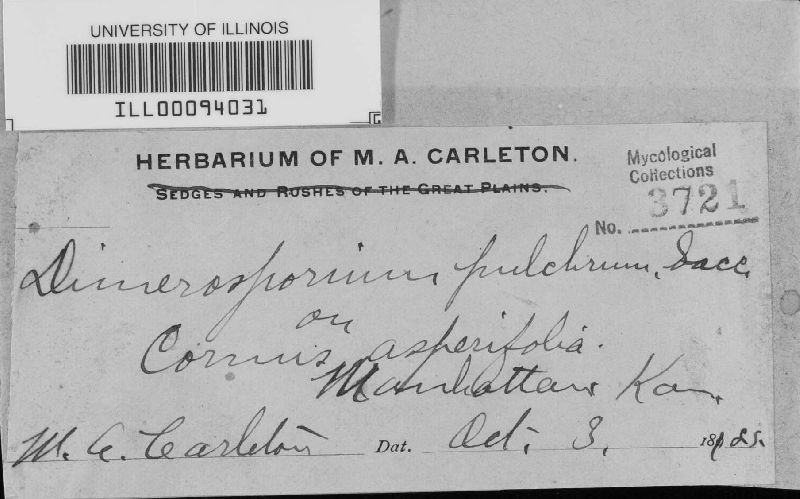 UNIVERSITY OF ILLINOIS
ILL00094031
HERBARIUM OF M. A. CARLETON.
SEDGES AND RUSHES OF THE GREAT PLAINS.
Mycological
Collections
No. 3721
Dimerosporium pulchrum, Sacc.
on
Cornus asperifolia.
Manhattan, Kan.
M. A. Carleton Dat. Oct. 3,